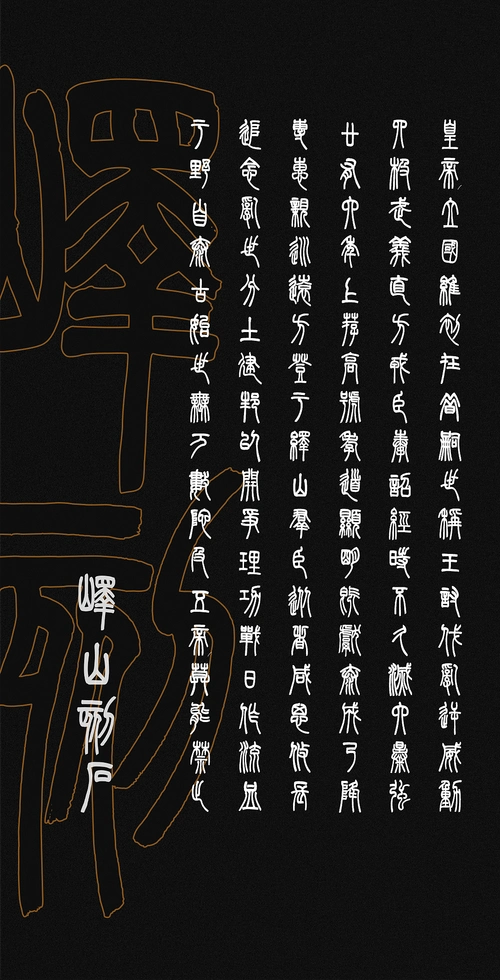 皇帝立國維初在昔嗣世稱王討伐亂逆威動
四極武義直方戎臣奉詔經時不久滅六暴強
廿有六年上薦高號孝道顯明既獻泰成乃降
專惠親巡遠方登于繹山群臣從者咸思攸長
追念亂世分土建邦以開爭理功戰日作流血
于野自泰古始世無萬數陀及五帝莫能禁止
嶧山刻石